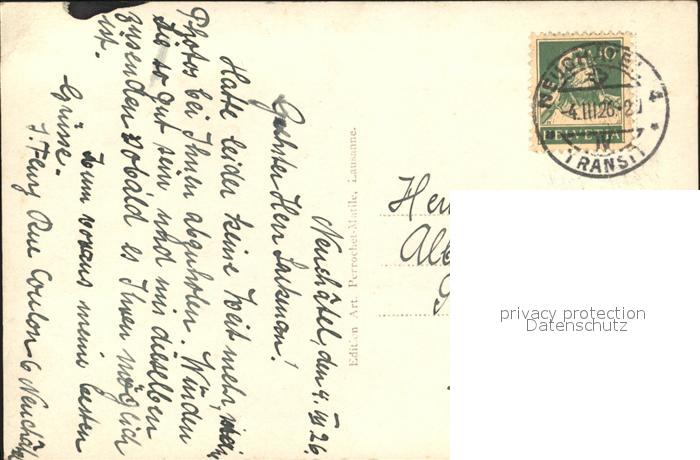 Neuchâtel, den 4. III 26.
Geehrter Herr
Habe leider keine Zeit mehr, mein
Photos bei Ihnen abzuholen. Würden
Sie so gut sein und mir dieselben
zusenden sobald es Ihnen möglich
ist.
Zum voraus meine besten
Grüsse.
Rue Coulon 6 Neuchâtel
Edition Art. Perrochet-Matile, Lausanne.
HELVETIA
10
4.III.26
TRANSIT
Her
Alb
privacy protection
Datenschutz